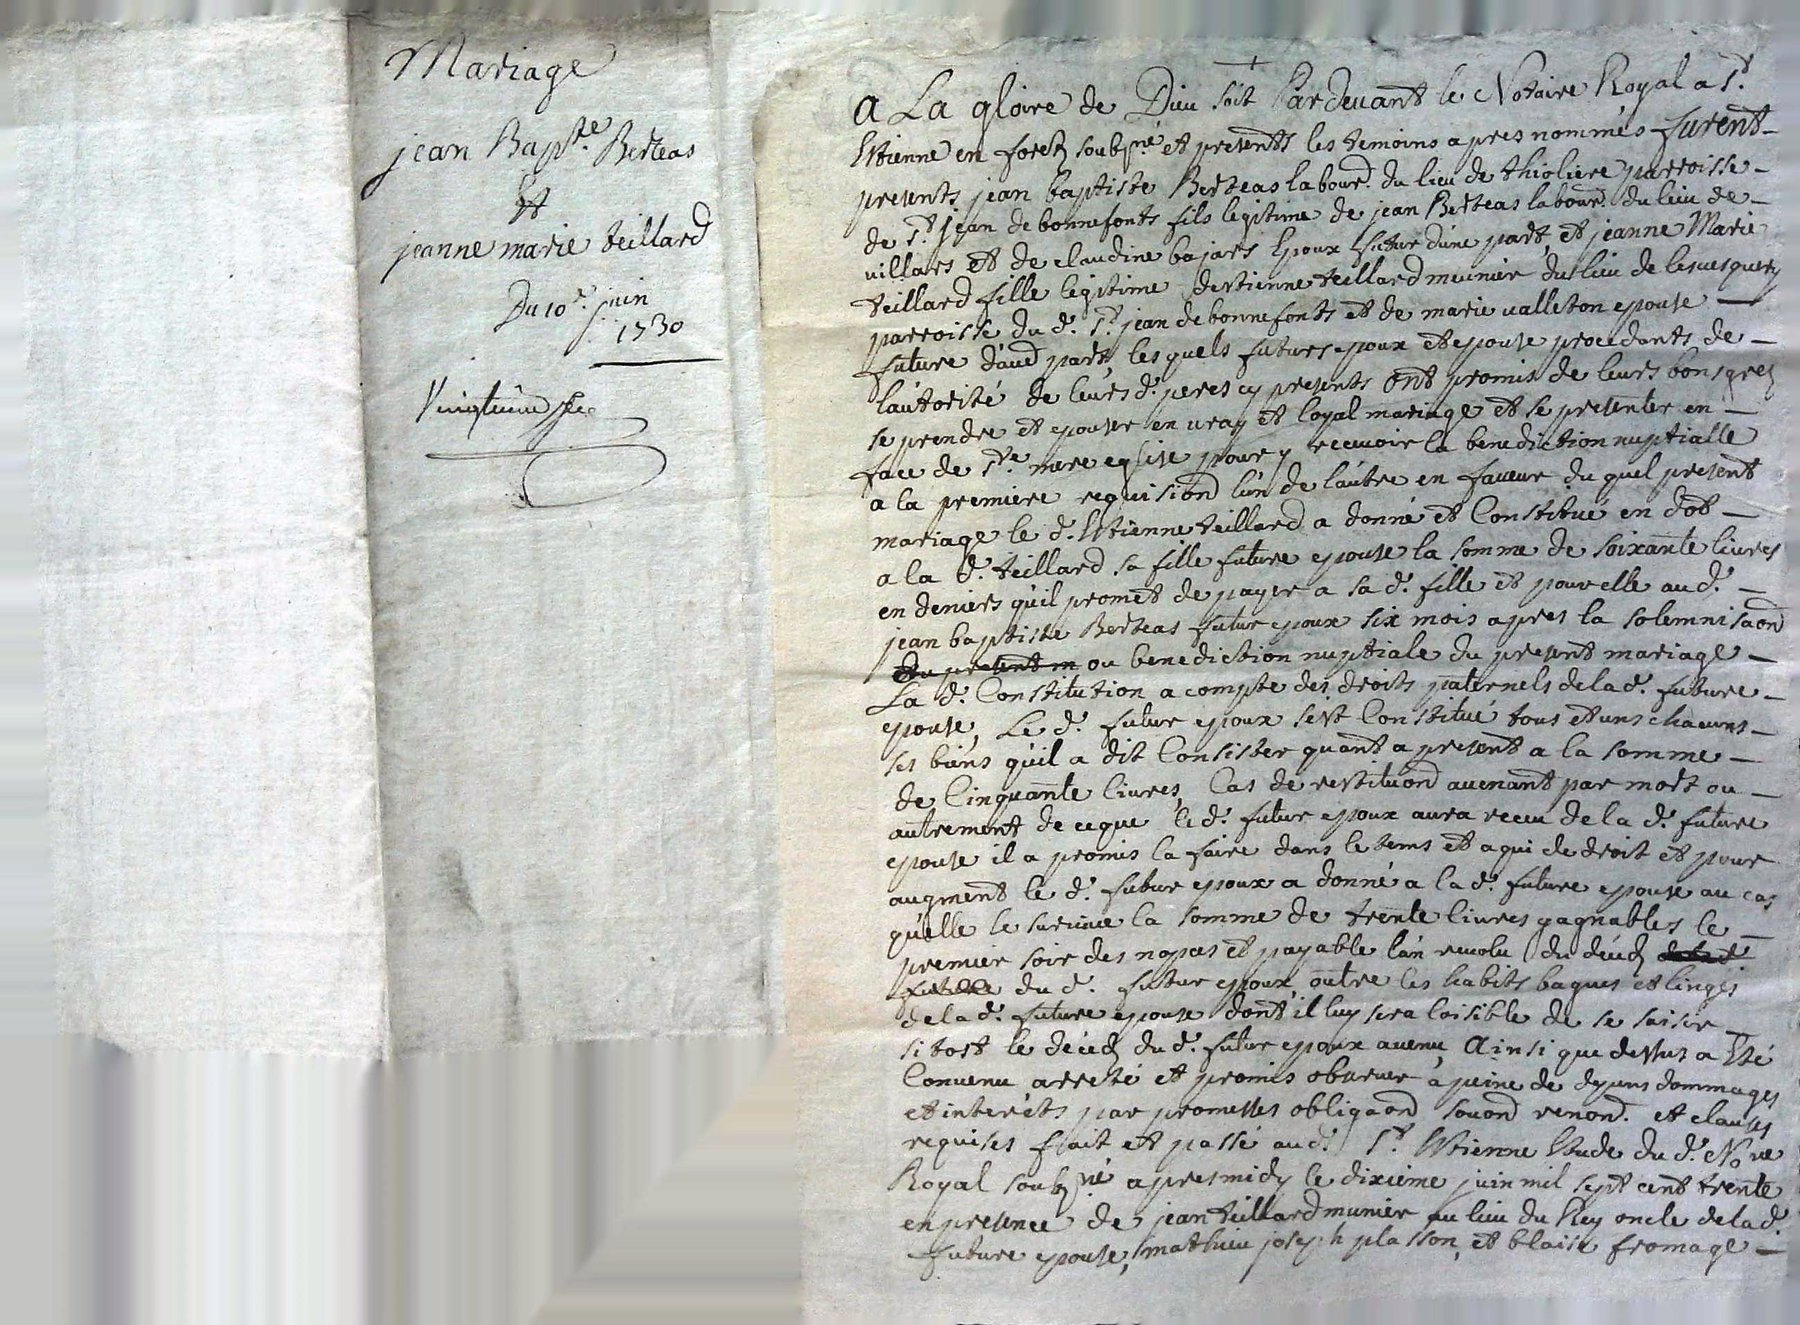 Mariage
jean Bap.te Berteas
Et
jeanne marie teillard
Du 10.e juin
1730
A La gloire de Dieu soit Pardevant le Notaire Royal a S.t
Etienne en forez soubs.né et presents les temoins apres nommés furent
presents jean baptiste Berteas labour.r du lieu de thioliere parroisse
de S.t jean de bonnefonts fils legitime de jean Berteas labour.r du lieu de
villars et de claudine bajars Epoux futur d'une part, et jeanne Marie
teillard fille legitime d'estienne teillard meunier du lieu de
parroisse du d. S.t jean de bonnefonts et de marie valleton epouse
future d'au͠d part, lesquels futurs epoux et epouse procedants de
l'autorité de leurs d. peres cy presents ont promis de leurs bons grez
se prendre et epouser en vray et loyal mariage et se presenter en
face de S.te mere eglise pour y recevoir la benediction nuptialle
a la premiere requisiond l'un de l'autre en faveur du quel present
mariage le d. Etienne teillard a donné et Constitué en dot
a la d. teillard sa fille future epouse la somme de soixante livres
en deniers qu'il promet de payer a sa d. fille et pour elle au d.
jean baptiste Berteas futur epoux six mois apres la solemnisaond
du present m ou benediction nuptiale du present mariage
La d. Constitution a compte des droits paternels de la d. future
epouse, Le d. futur epoux s'est Constitué tous et uns chacuns
ses biens qu'il a dit Consister quant a present a la somme
de Cinquante livres, Cas de restituond avenant par mort ou
autrement de ce que le d. futur epoux aura receu de la d. future
epouse il a promis la faire dans le tems et a qui de droit et pour
augment le d. futur epoux a donné a la d. future epouse au cas
qu'elle le survive la somme de trente livres gagnables le
premier soir des nopces et payable l'an revolu du décéz
du d. futur epoux, outre les habits bagues et linges
de la d. future epouse dont il luy sera loisible de se saisir
si tost le décéz du d. futur epoux avenu, Ainsi que dessus a Eté
Convenu arresté et promis observer a peine de depens dommages
et interêts par promesses obligaond souond renond. et clauses
requises fait et passé au d. S.t Etienne Etude du d. No.re
Royal soubs.né apresmidy le dixieme juin mil sept cent trente
en presence de jean teillard munier au lieu du Rey oncle de la d.
future epouse, mathieu joseph plasson, et blaise fromage